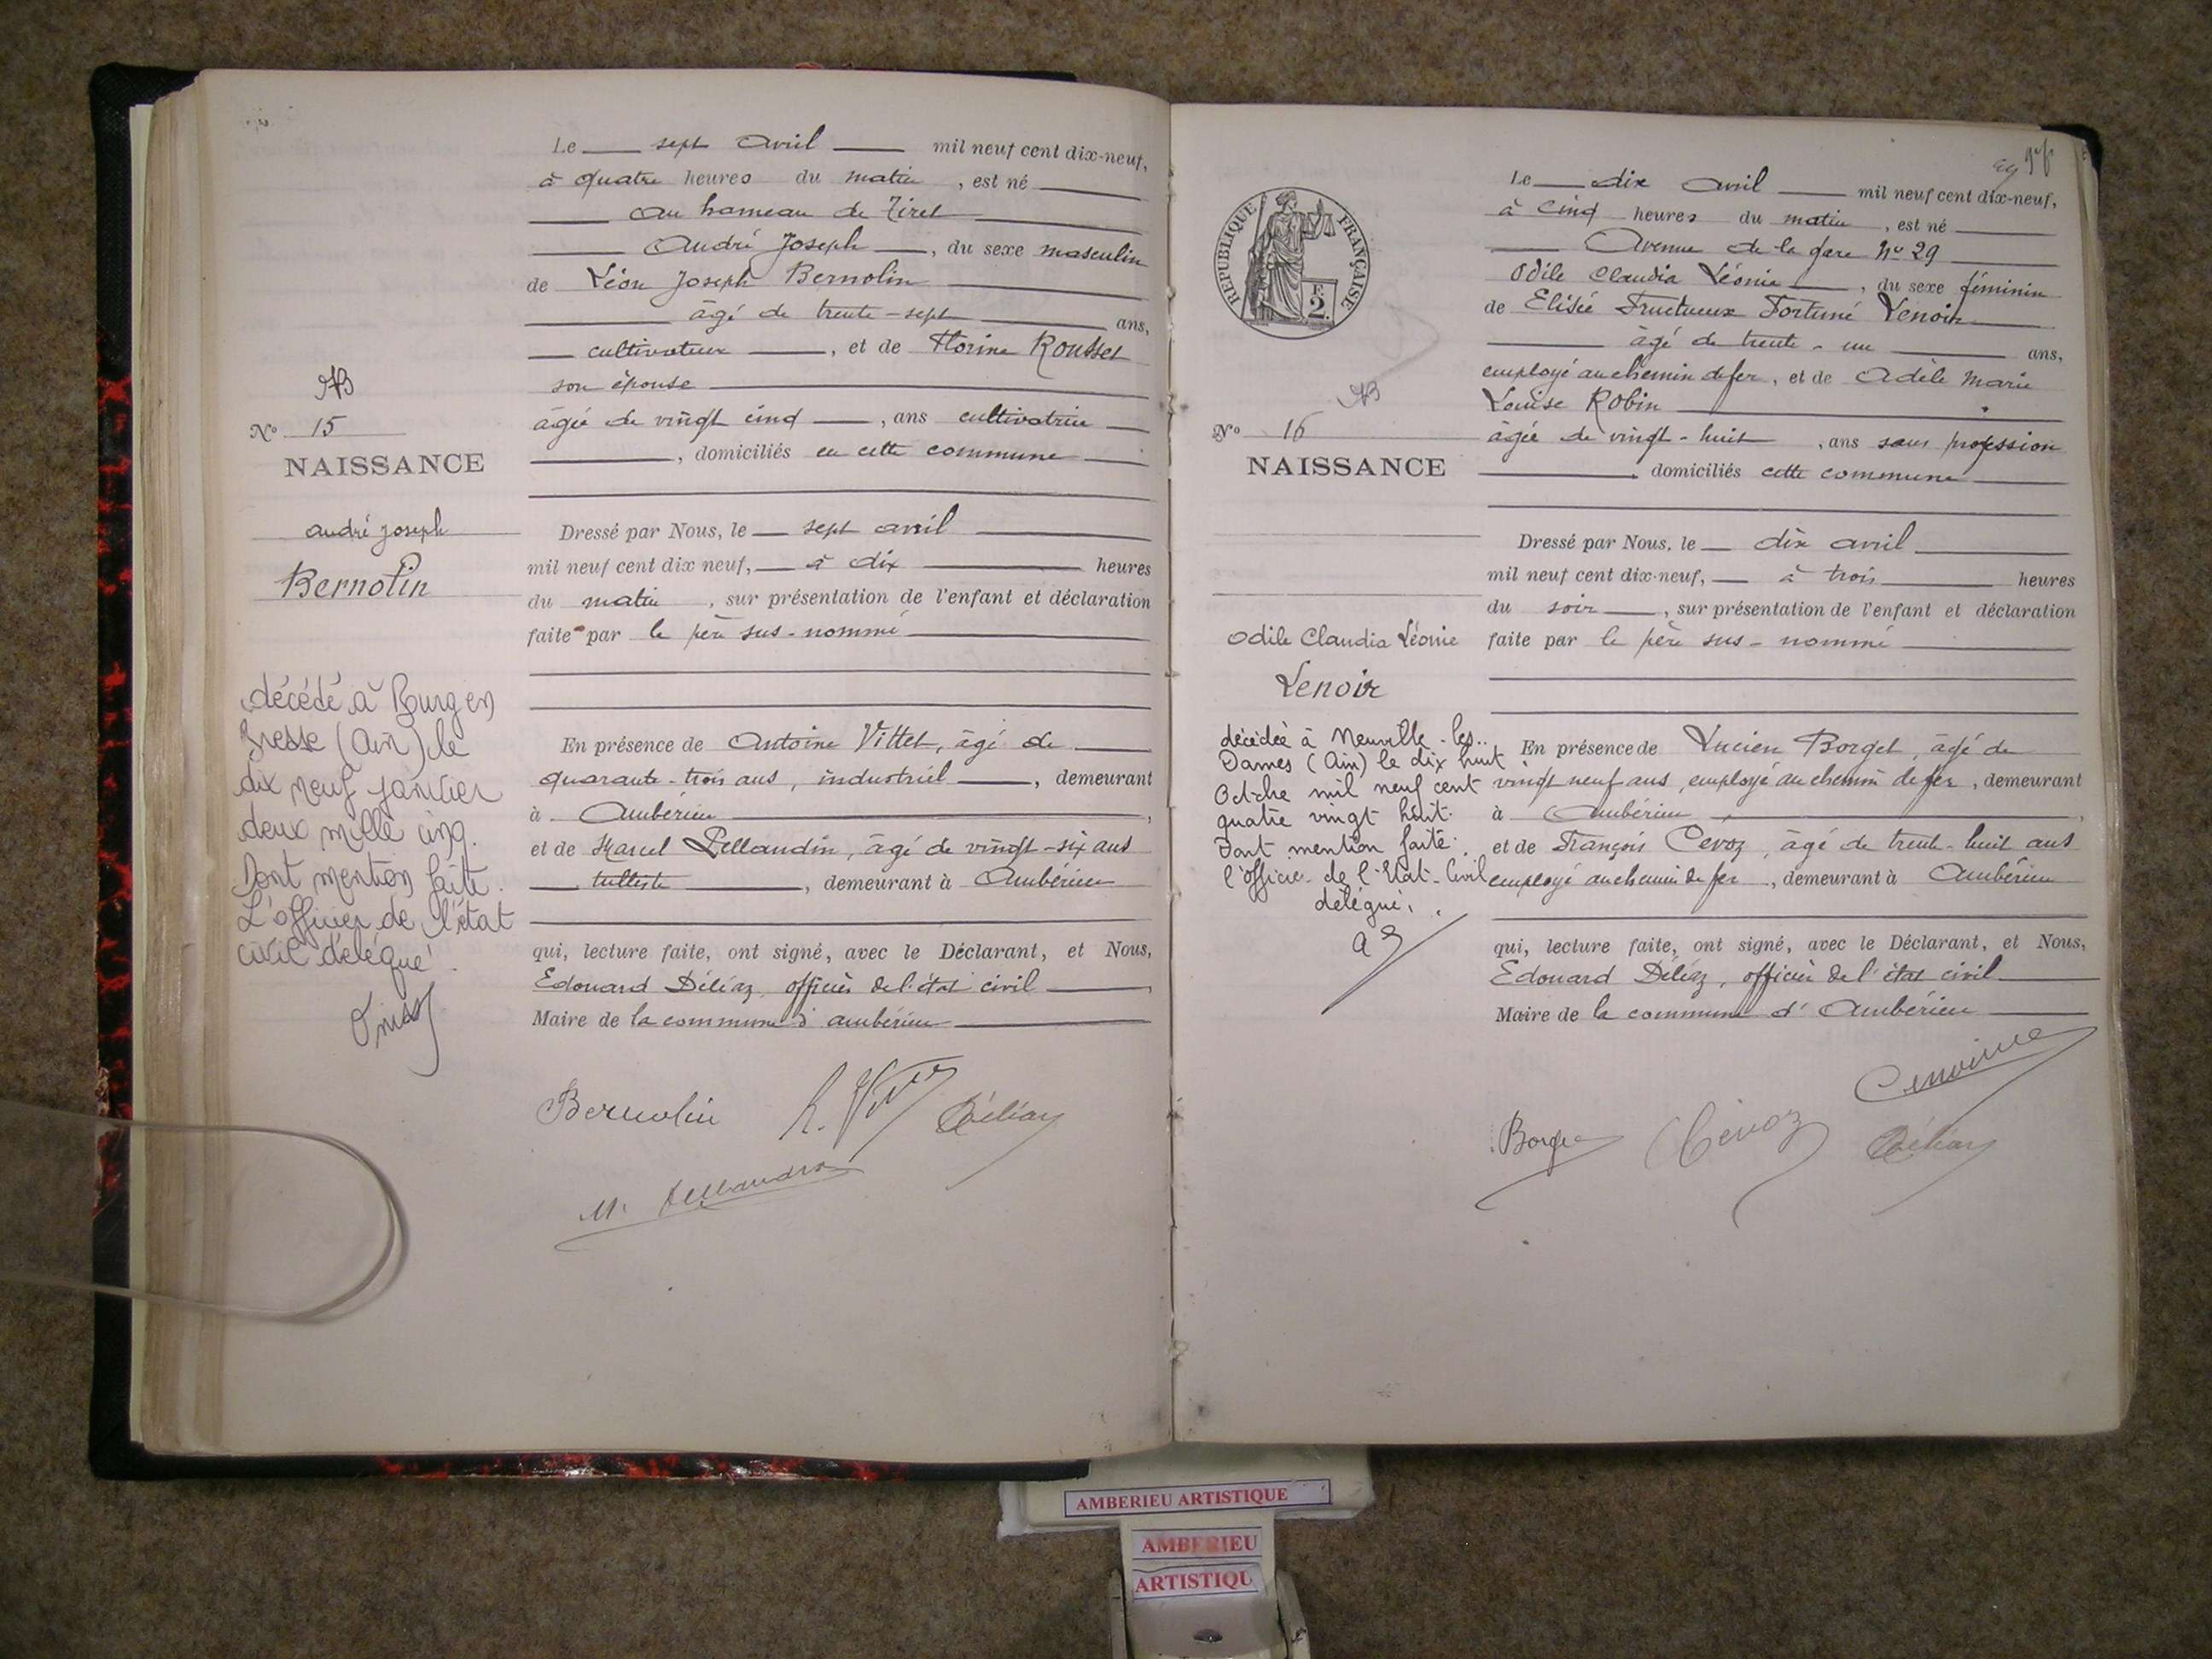 Le sept avril mil neuf cent dix-neuf,
à quatre heures du matin, est né
au hameau de Tiret
André Joseph, du sexe masculin
de Léon Joseph Bernolin
âgé de trente-sept ans,
cultivateur, et de Florine Rousset
son épouse
âgée de vingt cinq, ans cultivatrice
, domiciliés en cette commune
AB
No 15
NAISSANCE
andré joseph
Bernolin
Dressé par Nous, le sept avril
mil neuf cent dix neuf, à dix heures
du matin, sur présentation de l'enfant et déclaration
faite par le père sus-nommé
décédé à Bourg en
Bresse (Ain) le
dix neuf janvier
deux mille cinq.
Dont mention faite.
L'officier de l'état
civil délégué.
En présence de Antoine Vittet, âgé de
quarante-trois ans, industriel, demeurant
à Ambérieu,
et de Marcel Pellaudin, âgé de vingt-six ans
tulliste, demeurant à Ambérieu
qui, lecture faite, ont signé, avec le Déclarant, et Nous,
Edouard Déléaz, officier de l'état civil
Maire de la commune d'ambérieu
Bernolin
Déléaz
REPUBLIQUE FRANÇAISE
F.
2.
Le dix avril mil neuf cent dix-neuf,
à cinq heures du matin, est né
Avenue de la gare No 29
Odile Claudia Léonie, du sexe féminin
de Elisée Fructueux Fortuné Lenoir
âgé de trente-un ans,
employé au chemin de fer, et de Adèle Marie
Louise Robin
âgée de vingt-huit, ans sans profession
domiciliés cette commune
AB
No 16
NAISSANCE
Odile Claudia Léonie
Lenoir
Dressé par Nous, le dix avril
mil neuf cent dix-neuf, à trois heures
du soir, sur présentation de l'enfant et déclaration
faite par le père sus-nommé
décédée à Neuville-les-
Dames (Ain) le dix huit
Octobre mil neuf cent
quatre vingt huit.
Dont mention faite.
l'officier de l'Etat-Civil
délégué,
En présence de Lucien Borget, âgé de
vingt neuf ans, employé au chemin de fer, demeurant
à Ambérieu,
et de François Cevoz, âgé de trente-huit ans
employé au chemin de fer, demeurant à Ambérieu
qui, lecture faite, ont signé, avec le Déclarant, et Nous,
Edouard Déléaz, officier de l'état civil
Maire de la commune d'Ambérieu
Cevoz
Déléaz
AMBERIEU ARTISTIQUE
AMBERIEU
ARTISTIQU